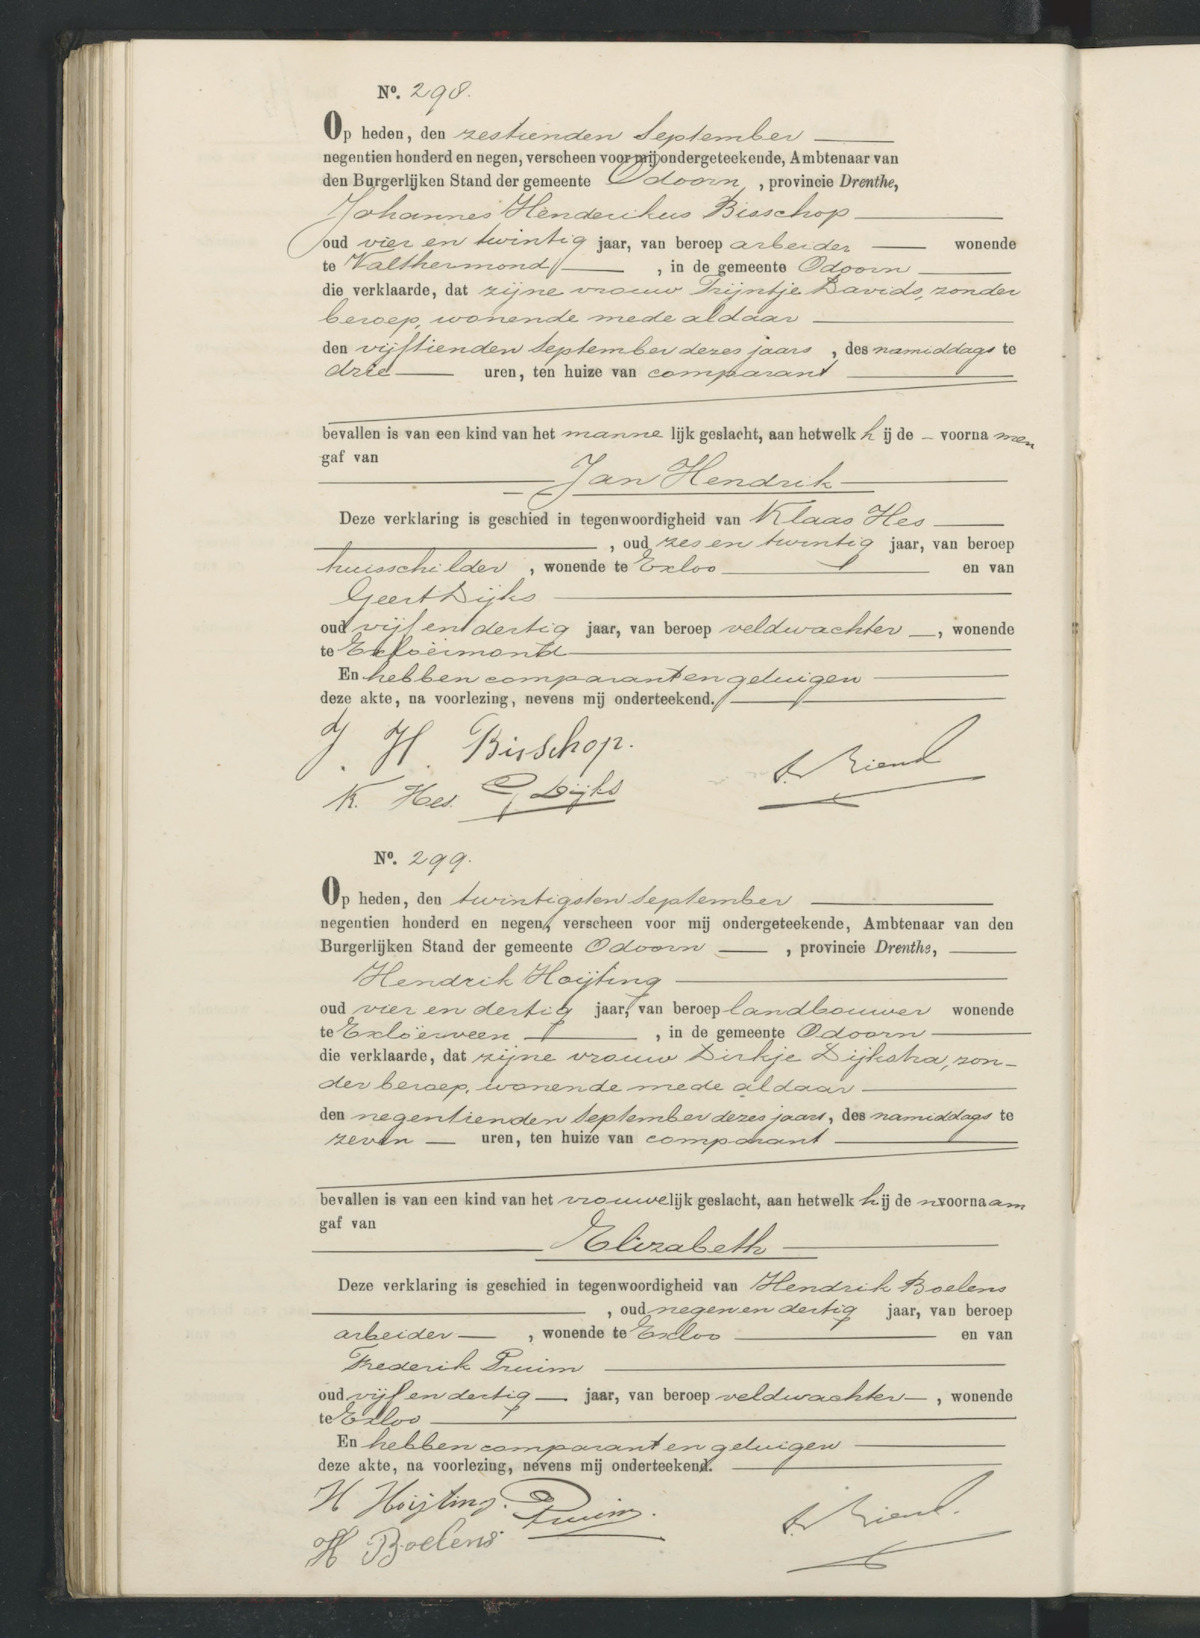 Nº. 298.
Op heden, den zestienden September
negentien honderd en negen, verscheen voor mij ondergeteekende, Ambtenaar van
den Burgerlijken Stand der gemeente Odoorn, provincie Drenthe,
Johannes Henderikus Bisschop
oud vier en twintig jaar, van beroep arbeider wonende
te Valthermond, in de gemeente Odoorn
die verklaarde, dat zijne vrouw Trijntje Davids, zonder
beroep, wonende mede aldaar
den vijftienden September dezes jaars, des namiddags te
drie uren, ten huize van comparant
bevallen is van een kind van het mannelijk geslacht, aan hetwelk hij de voornamen
gaf van
Jan Hendrik
Deze verklaring is geschied in tegenwoordigheid van Klaas Hes
, oud zes en twintig jaar, van beroep
huisschilder, wonende te Exloo en van
Geert Dijks
oud vijf en dertig jaar, van beroep veldwachter, wonende
te Exloërmond
En hebben comparant en getuigen
deze akte, na voorlezing, nevens mij onderteekend.
J. H. Bisschop.
K. Hes. G Dijks
Nº. 299.
Op heden, den twintigsten September
negentien honderd en negen, verscheen voor mij ondergeteekende, Ambtenaar van den
Burgerlijken Stand der gemeente Odoorn, provincie Drenthe,
Hendrik Hoijting
oud vier en dertig jaar, van beroep landbouwer wonende
te Exloërveen, in de gemeente Odoorn
die verklaarde, dat zijne vrouw Dirkje Dijkstra, zon-
der beroep, wonende mede aldaar
den negentienden September dezes jaars, des namiddags te
zeven uren, ten huize van comparant
bevallen is van een kind van het vrouwelijk geslacht, aan hetwelk hij de voornaam
gaf van
Elizabeth
Deze verklaring is geschied in tegenwoordigheid van Hendrik Boelens
, oud negen en dertig jaar, van beroep
arbeider, wonende te Exloo en van
Frederik Pruim
oud vijf en dertig jaar, van beroep veldwachter, wonende
te Exloo
En hebben comparant en getuigen
deze akte, na voorlezing, nevens mij onderteekend.
H Hoijting. Pruim.
H Boelens